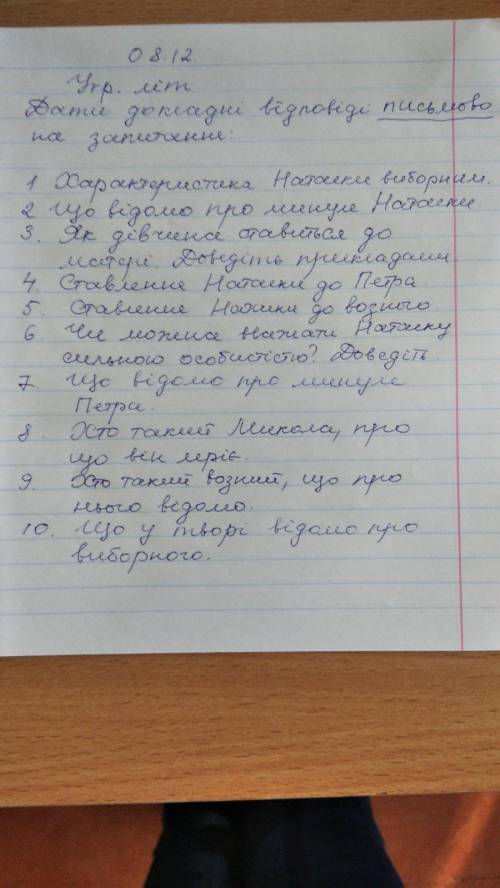 08.12.
Укр. літ
Дати докладні відповіді письмово
на запитання:
1 Характеристика Наталки виборним.
2 Що відомо про минуле Наталки.
3. Як дівчина ставиться до
матері. Доведіть прикладами.
4. Ставлення Наталки до Петра.
5 Ставлення до возного.
6 Чи можна Наталку
сильною особистістю? Доведіть.
7. Що відомо про минуле
Петра.
8. Хто такий Микола, про
що він мріє.
9. Хто такий возний, що про
нього відомо.
10. Що у творі відомо про
виборного.